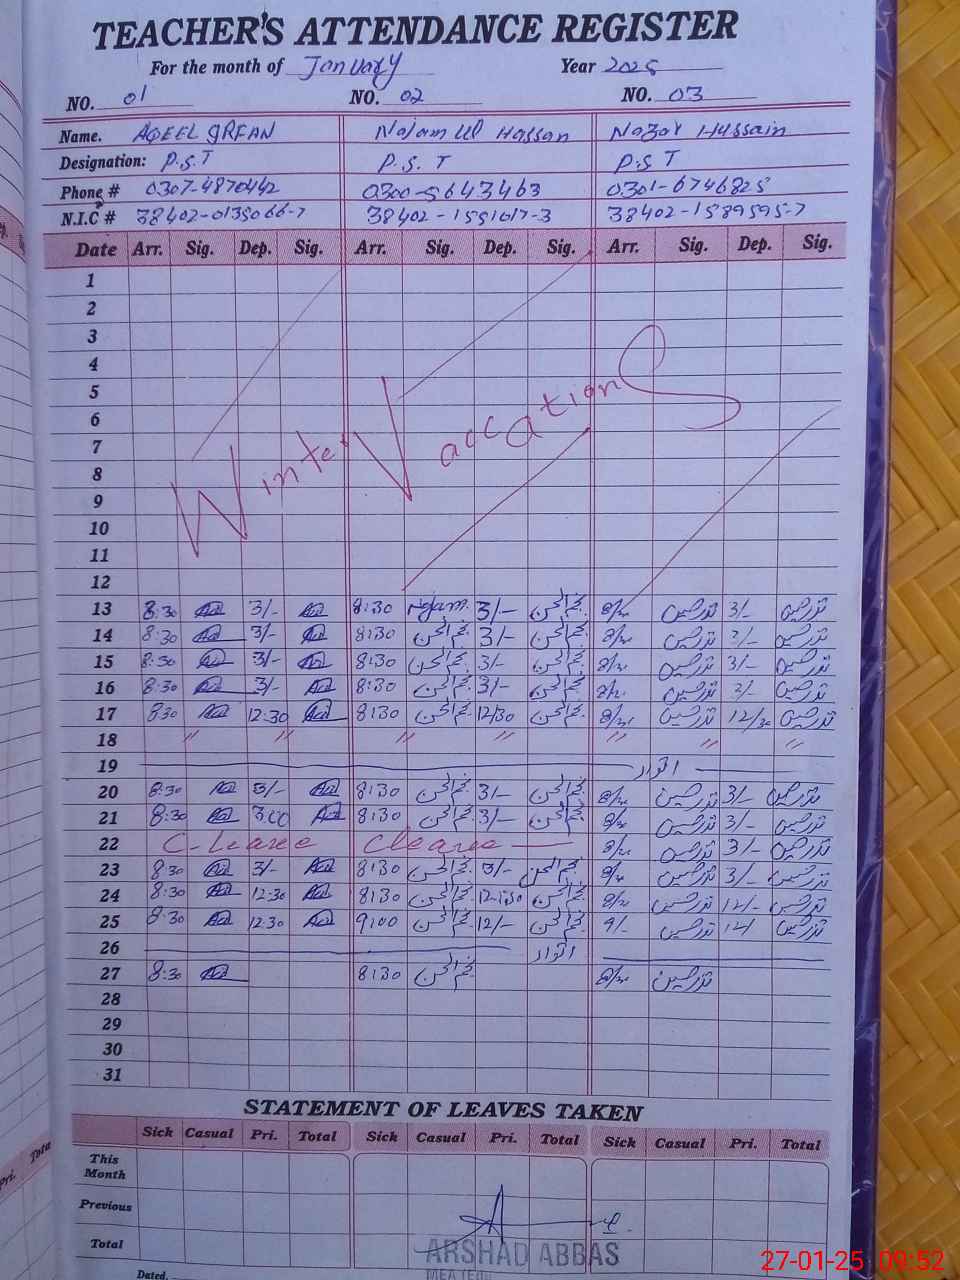 TEACHER'S ATTENDANCE REGISTER
For the month of January Year 2025
NO. 01 NO. 02 NO. 03
Name. AQEEL IRFAN Najam Ul Hassan Nazar Hussain
Designation: P.S.T P.S.T P.S T
Phone # 0307-4870442 0300-5643463 0301-6746825
N.I.C # 38402-0135066-7 38402-1551017-3 38402-1589595-7
Date Arr. Sig. Dep. Sig. Arr. Sig. Dep. Sig. Arr. Sig. Dep. Sig.
1
2
3
4
5
6
7
8
9
10
11
12
Winter Vaccations
13 8:30 3/- 8:30 Najam 3/- نجم الحسن 8/30 نذر حسین 3/- نذر حسین
14 8:30 3/- 8:30 نجم الحسن 3/- نجم الحسن 8/30 نذر حسین 3/- نذر حسین
15 8:30 3/- 8:30 نجم الحسن 3/- نجم الحسن 8/30 نذر حسین 3/- نذر حسین
16 8:30 3/- 8:30 نجم الحسن 3/- نجم الحسن 8/30 نذر حسین 3/- نذر حسین
17 830 12:30 8:30 نجم الحسن 12/30 نجم الحسن 8/30 نذر حسین 12/30 نذر حسین
18 " " " " " " "
19 اتوار
20 8:30 3/- 8:30 نجم الحسن 3/- نجم الحسن 8/30 نذر حسین 3/- نذر حسین
21 8:30 3:00 8:30 نجم الحسن 3/- نجم الحسن 8/30 نذر حسین 3/- نذر حسین
22 C-Leavee Cleavee 8/30 نذر حسین 3/- نذر حسین
23 830 3/- 8:30 نجم الحسن 3/- نجم الحسن 8/30 نذر حسین 3/- نذر حسین
24 8:30 12:30 8:30 نجم الحسن 12:30 نجم الحسن 8/30 نذر حسین 12/- نذر حسین
25 8:30 12:30 9:00 نجم الحسن 12/- نجم الحسن 9/- نذر حسین 12/ نذر حسین
26 اتوار
27 8:30 8:30 نجم الحسن 8/30 نذر حسین
28
29
30
31
STATEMENT OF LEAVES TAKEN
Sick Casual Pri. Total Sick Casual Pri. Total Sick Casual Pri. Total
This Month
Previous
Total
ARSHAD ABBAS
Dated.
Pri. Tota
27-01-25 09:52